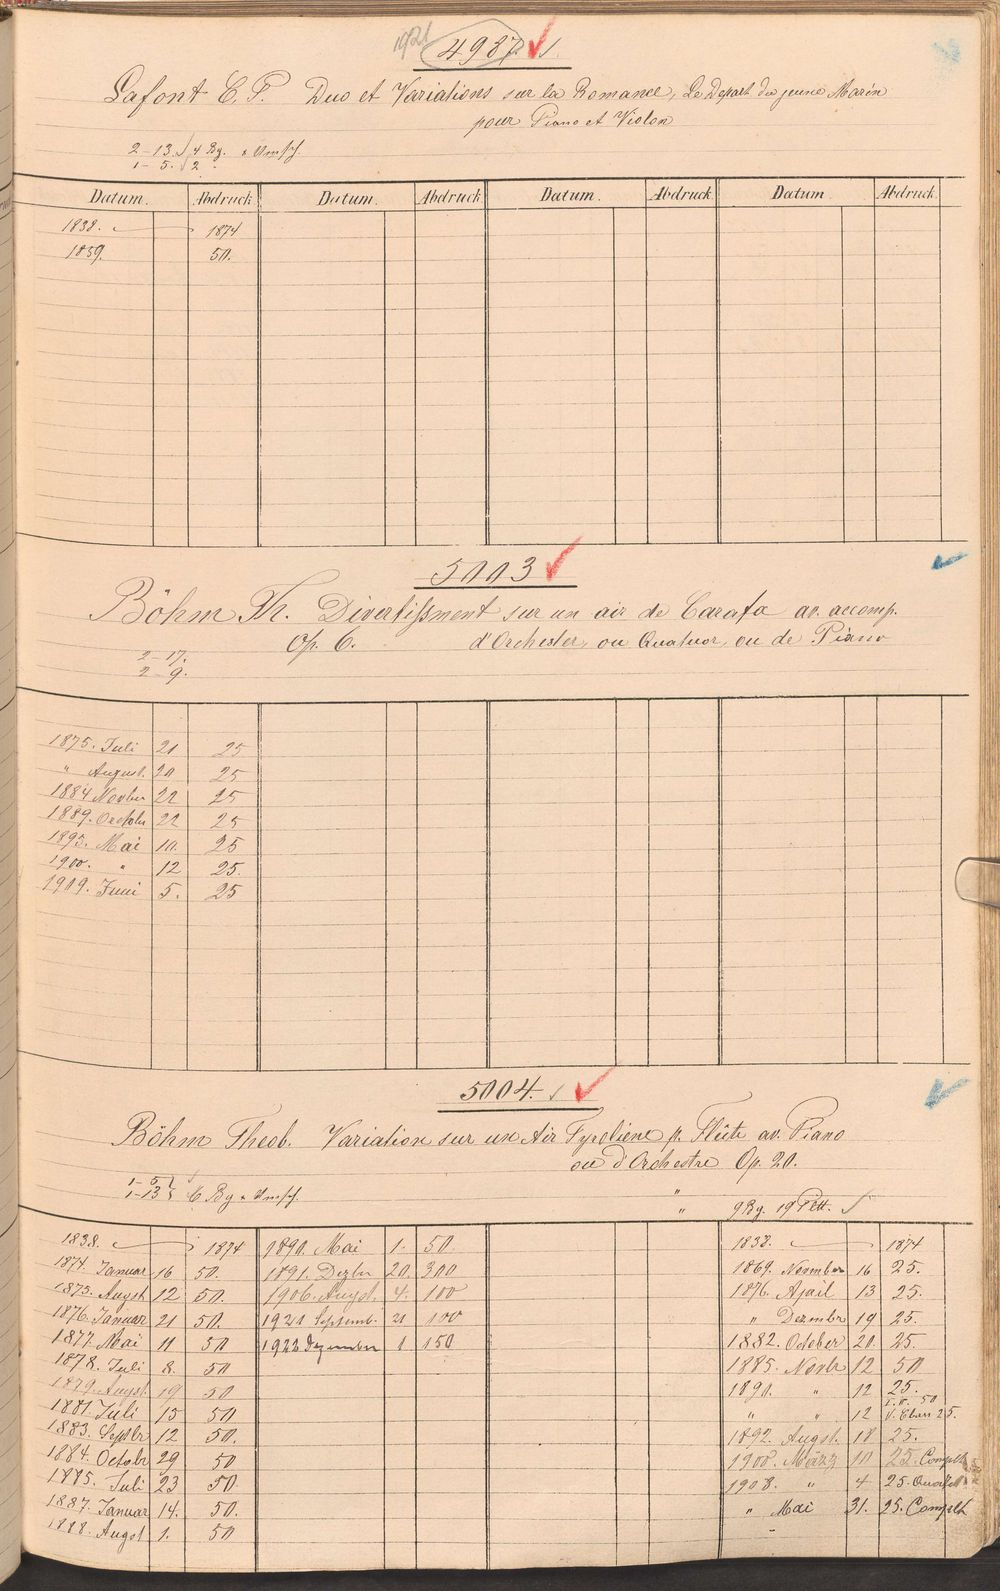 1921 4987.
Lafont C. P. Duo et Variations sur la Romance, Le Depart du jeune Marin
pour Piano et Violon
2-13. 4 Bg. + Umsch.
1-5. 2
Datum. Abdruck Datum. Abdruck Datum. Abdruck Datum. Abdruck
1838. 1874
1859. 50.
5003
Böhm Th. Divertissment sur un air de Carafa av. accomp.
Op. 6. d'Orchester, ou Quatuor, ou de Piano
2-17.
2-9.
1875. Juli 21 25
" August. 20 25
1884 Novber 22 25
1889. Octobr 22 25
1895. Mai 10. 25
1900. " 12 25.
1909. Juni 5. 25
5004.
Böhm Theob. Variation sur un Air Tyroliene p. Flûte av. Piano
ou d'Orchestre Op. 20.
1-5
1-13 6 Bg + Umsch. "
" 9 Bg. 19 Plt.
1838. 1874 1890. Mai 1. 50. 1838. 1874
1874. Januar 16 50. 1891. Dezbr 20. 300 1869. November 16 25.
1875. Augst 12 50. 1906. Augst. 4. 100 1876. April 13 25.
1876. Januar 21 50. 1921 Septemb. 21 100 " Dezembr 19 25.
1877. Mai 11 50 1922 Dezember 1 150 1882. October 20. 25.
1878. Juli 8. 50 1885. Novbr 12 50
1879. Augst. 19 50 1890. " 12 25.
1881. Juli 15 50 " " 12 50
25.
1883. Septbr 12 50. 1892. Augst. 18 25.
1884. Octobr 29 50 1900. März 10 25. Complt
1885. Juli 23 50. 1908. " 4 25.
1887. Januar 14. 50. " Mai 31. 25. Complt
1888. Augst 1. 50